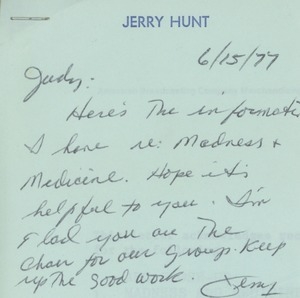 JERRY HUNT
6/15/77
Judy:
Here's The informati
I have re: Madness &
Medicine. Hope it's
helpful to you. I'm
glad you are The
Chair for our Group. Keep
up The good work. Jerry